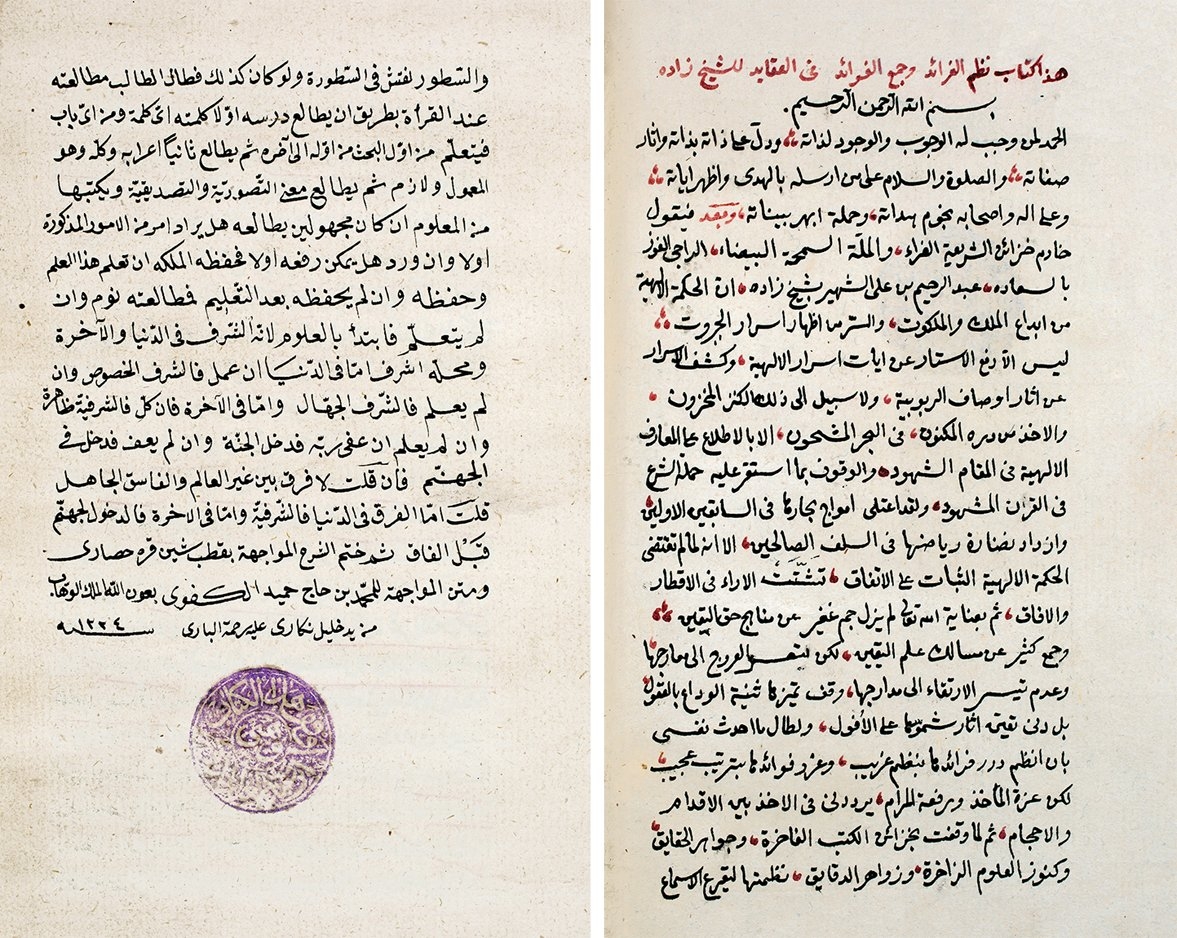 هذا كتاب نظم الفرائد وجمع الفوائد فى العقايد للشيخ زاده
بسم الله الرحمن الرحيم
الحمد لمن وجب له الوجوب والوجود لذاته ودل على ذاته بذاته واثار
صفاته والصلوة والسلام على من ارسله بالهدى واظهر اياته
وعلى اله واصحابه نجوم هداته وحملة ابهر بيناته وبعد فيقول
خادم خزائن الشريعة الغراء والملة السمحة البيضاء الراجى الفوز
بالسعاده عبد الرحيم بن على الشهير بشيخ زاده ان الحكمة الالهية
من ابداع الملك والملكوت والستر من اظهار اسرار الجبروت
ليس الا رفع الاستار عن ايات اسرار الالهية وكشف الاسرار
عن اثار اوصاف الربوبية ولا سبيل الى ذلك الكنز المخزون
والاخذ من دره المكنون فى البحر المشحون الا بالاطلاع على المعارف
الالهية فى المقام الشهود والوقوف بما استقر عليه حملة الشرع
فى القران المشهود ولقد اعتلى امواج بحارها فى السابقين الاولين
وازداد نضارة رياضها فى السلف الصالحين الا انه لما لم تقتضى
الحكمة الالهية الثبات على الاتفاق تشتت الاراء فى الاقطار
والافاق ثم بعناية الله تعالى لم يزل جم غفير عن مناهج حق اليقين
وجمع كثير عن مسالك علم اليقين لكن لتعسر العروج الى معارجها
وعدم تيسر الارتقاء الى مدارجها وقف تميزها ثنية الوداع بالقفول
بل دنى بقية اثار شموسها على الأفول ولطال ما احدث نفسى
بان انظم درر فرائدها بنظم غريب وعزر فوائدها بترتيب عجيب
لكن عزة المأخذ ورفعة المرام يرددنى فى الاخذ بين الاقدام
والاحجام ثم لما وقفت بخزائن الكتب الفاخرة وجواهر الحقايق
وكنوز العلوم الزاخرة وزواهر الدقايق نظمتها ليقرع الاسماع
والسطور يفتش فى السطورة ولو كان كذلك فطال الطالب مطالعته
عند القرأة بطريق ان يطالع درسه اولا كلمته اى كلمة ومن اى باب
فيتعلم من اول البحث من اوله الى آخره ثم يطالع ثانياً اعرابه وكله وهو
المعمول ولازم ثم يطالع معنى التصورية والتصديقية ويكتبها
من المعلوم ان كان مجهولين يطالعه هل يراد امر من الامور المذكورة
اولا وان ورد هل يمكن رفعه اولا فحفظه الملكه ان تعلم هذا العلم
وحفظه وان لم يحفظه بعد التعليم فطالعته نوم وان
لم يتعلم فابتدأ بالعلوم لانه الشرف فى الدنيا والآخرة
ومحله اشرف اما فى الدنيا ان عمل فالشرف الخصوص وان
لم يعلم فالشرف الجهال واما فى الآخرة فان كل فالشرفية ظاهرة
وان لم يعلم ان عفى ربه فدخل الجنة وان لم يعف فدخل فى
الجهنم فأن قلت لا فرق بين غير العالم والفاسق الجاهل
قلت اما الفرق فى الدنيا فالشرفية واما فى الاخرة فالدخول الجهنم
قبل الفاق ثم ختم الشرح المواجهة بقطب شين قره حصارى
ومتن المواجهة للمحمد بن حاج حميد الكفوى بعون الله الملك الوهاب
من يد خليل نكارى عليه رحمة البارى ١٢٢٤ سنه